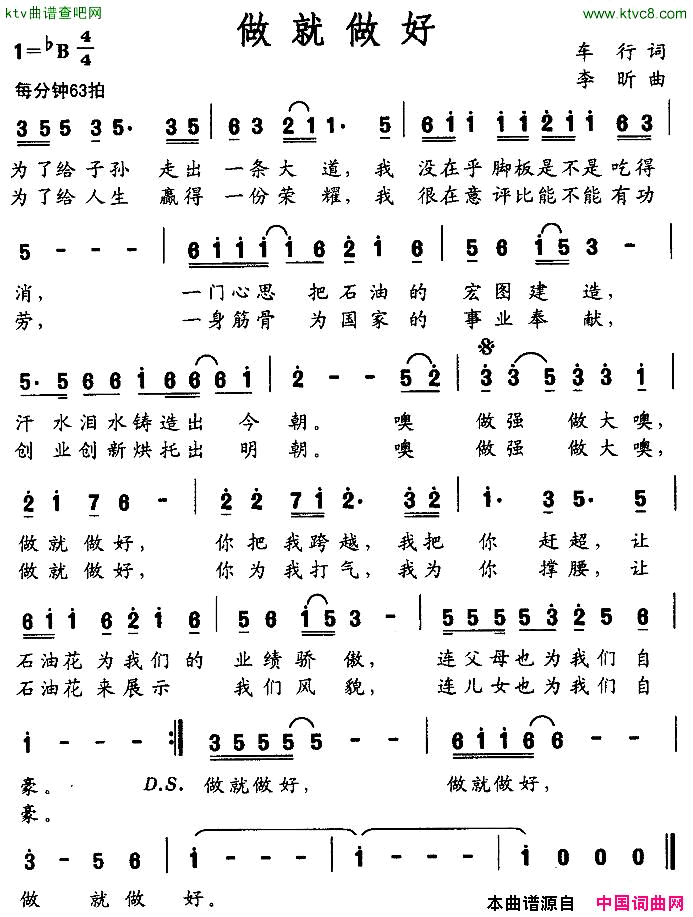 ktv曲谱查吧网
www.ktvc8.com
做就做好
1=♭B 4/4
车行词
李昕曲
每分钟63拍
3 5 5 3 5· 3 5 | 6 3 2 1 1 1· 5 | 6 1 1 1 1 2 1 1 6 3 |
为了给子孙 走出 一条大 道,我 没在乎脚板是不是吃得
为了给人生 赢得 一份荣 耀,我 很在意评比能不能有功
5 - - - | 6 1 1 1 1 6 2 1 6 | 5 6 1 5 3 - |
消, 一门心思 把石油的 宏图建 造,
劳, 一身筋骨 为国家的 事业奉 献,
5· 5 6 6 1 6 6 6 1 | 2 - - 5 2 | 3 3 5 3 3 1 |
汗 水泪水铸造出 今 朝。 噢 做强 做大噢,
创 业创新烘托出 明 朝。 噢 做强 做大噢,
2 1 7 6 - | 2 2 7 1 2· 3 2 | 1· 3 5· 5 |
做就做好, 你把我跨越,我把 你 赶超,让
做就做好, 你为我打气,我为 你 撑腰,让
6 1 1 6 2 1 6 | 5 6 1 5 3 - | 5 5 5 5 3 2 5 6 |
石油花 为我们的 业绩骄 傲, 连父母也为我们自
石油花 来展示 我们风 貌, 连儿女也为我们自
1 - - :‖ 3 5 5 5 5 5 - - | 6 1 1 1 6 6 - - |
豪。 D.S. 做就做好, 做就做好,
豪。
3 - 5 6 | 1 - - - | 1 - - - | 1 0 0 0 ‖
做 就做 好。
本曲谱源自 中国词曲网